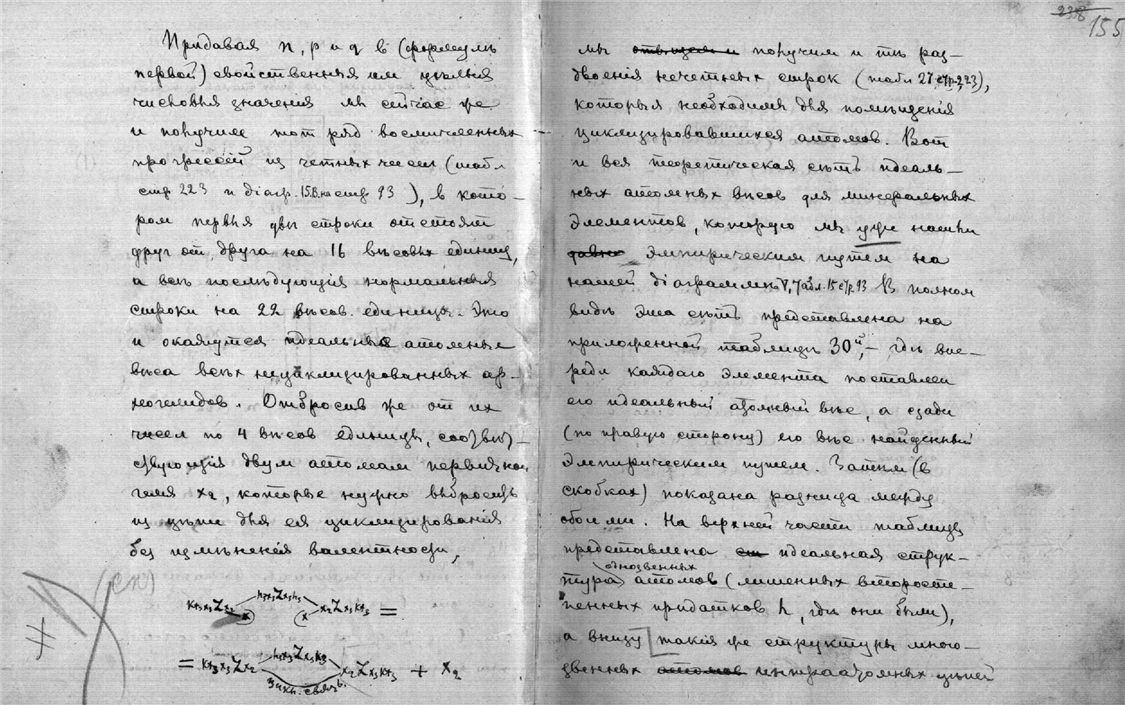 Придавая n, p и q в (формулѣ
первой) свойственныя им цѣлыя
числовыя значения мы сейчас же
и получим тот ряд восмичленных
прогрессій из четных чисел (табл
стр 223 и діагр. 15 на стр 93), в кото-
ром первыя двѣ строки отстоят
друг от друга на 16 вѣсовых единиц,
а всѣ послѣдующія нормальныя
строки на 22 вѣсов. единицы. Это
и окажутся идеальные атомные
вѣса всѣх нециклизированных ар-
хогелидов. Отбросив же от их
чисел по 4 вѣсов единицы, соотвѣт-
ствующія двум атомам первичнаго
гелия x₂, которые нужно выбросить
из цѣпи для ея циклизированія
без измѣненія валентности,
(сн)
=
= + x₂
зикл. связь.
238
155
мы получим и тѣ раз-
двоенія нечетных строк (табл 27 стр. 223),
которыя необходимы для помѣщенія
циклизировавшихся атомов. Вот
и вся теоретическая сѣть идеаль-
ных атомных вѣсов для минеральных
элементов, которую мы уже нашли
эмпирическим путем на
нашей діаграммѣ V, табл. 15 стр. 93 В полном
видѣ эта сѣть представлена на
приложенной таблицѣ 30й,- гдѣ впе-
реди каждаго элемента поставлен
его идеальный атомный вѣс, а сзади
(по правую сторону) его вѣс найденный
эмпирическим путем. Затѣм (в
скобках) показана разница между
обоими. На верхней части таблицы
представлена идеальная струк-
однозвенных
тура атомов (лишенных второсте-
пенных придатков h, гдѣ они были),
а внизу такія же структуры много-
звенных интраатомных цѣпей